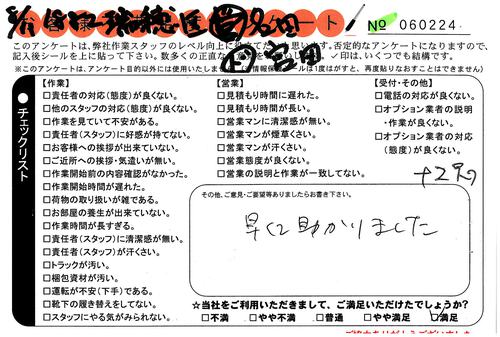 ート
№ 060224
このアンケートは、弊社作業スタッフのレベル向上に
思います。否定的なアンケートになりますので、
記入後シールを上に貼って下さい。数多くの正直な
ノ印は、いくつでも結構です。
※このアンケートは、アンケート目的以外には使用いたしま
情報保護シールは1度はがすと、再度貼りなおすことはできません)
●チェックリスト
【作業】
□責任者の対応(態度)が良くない。
□他のスタッフの対応(態度)が良くない。
□作業を見ていて不安がある。
□責任者(スタッフ)に好感が持てない。
□お客様への挨拶が出来ていない。
□ご近所への挨拶・気遣いが無い。
□作業開始前の内容確認がなかった。
□作業開始時間が遅れた。
□荷物の取り扱いが雑である。
□お部屋の養生が出来ていない。
□作業時間が長すぎる。
□責任者(スタッフ)に清潔感が無い。
□責任者(スタッフ)が汗くさい。
□トラックが汚い。
□梱包資材が汚い。
□運転が不安(下手)である。
□靴下の履き替えをしてない。
□スタッフにやる気がみられない。
【営業】
□見積もり時間に遅れた。
□見積もりが長い。
□営業マンに清潔感が無い。
□営業マンが煙草くさい。
□営業マンが汗くさい。
□営業態度が良くない。
□営業の説明と作業が一致してない。
【受付・その他】
□電話の対応が良くない。
□オプション業者の説明
・作業が良くない。
□オプション業者の対応
(態度)が良くない。
その他、ご意見・ご要望等ありましたらお書き下さい。
早くて助かりました
☆当社をご利用いただきまして、ご満足いただけたでしょうか?
□不満 □やや不満 □普通 □やや満足 □満足